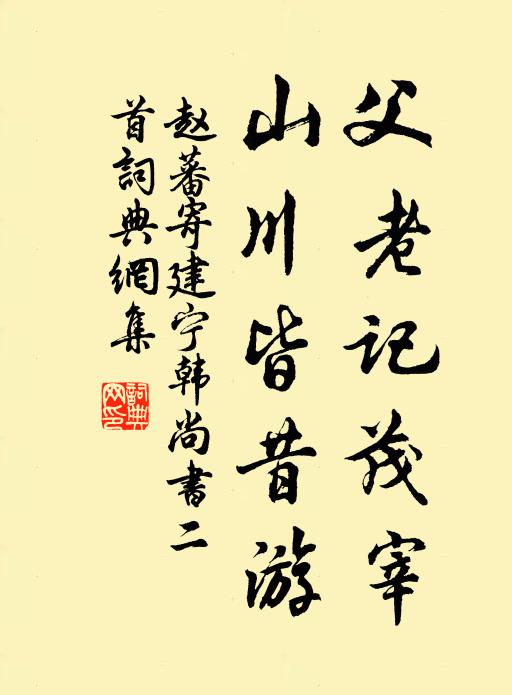 父老记茂宰
山川皆昔游
赵蕃寄建宁韩尚书二
首詞典網集
詞典网印